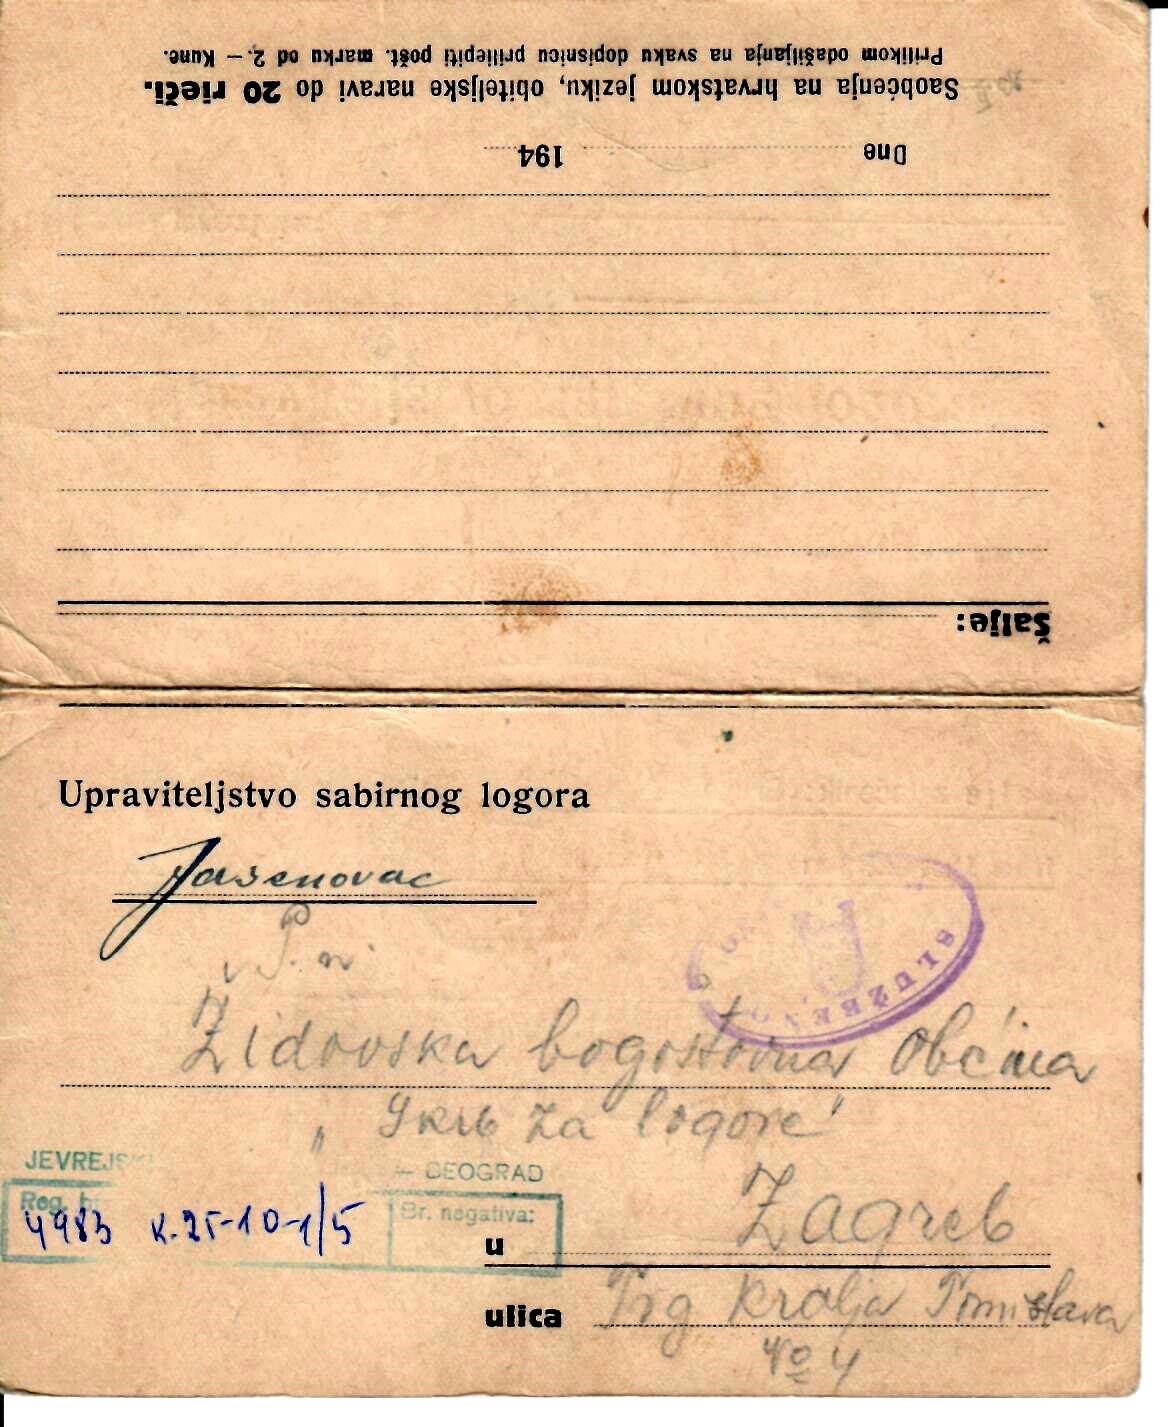 Prilikom odašiljanja na svaku dopisnicu priliepiti pošt. marku od 2.— Kune.
Saobćenja na hrvatskom jeziku, obiteljske naravi do 20 rieči.
Dne 194
Šalje:
Upraviteljstvo sabirnog logora
Jasenovac
P. n.
SLUŽBENO
Židovska bogoštovna obćina
„Skrb za logore"
JEVREJSKI — BEOGRAD
Reg. b
Br. negativa:
4983 K.25-10-1/5
Zagreb
u
ulica Trg Kralja Tomislava
No 4